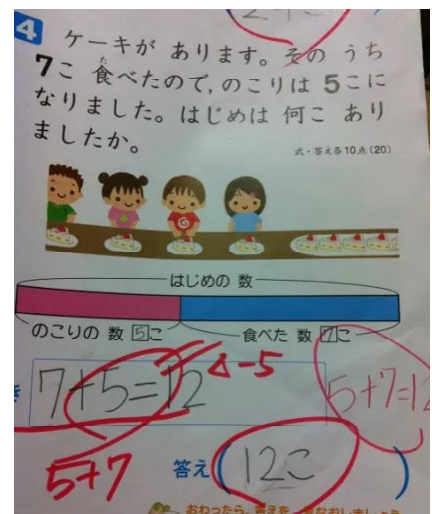 4
ケーキが あります。その うち
7こ 食べたので,のこりは 5こに
た
なりました。はじめは 何こ あり
ましたか。
式・答え各10点(20)
はじめの 数
のこりの 数 5こ
食べた 数 7こ
7+5=12
△-5
5+7=12
5+7
答え(12こ)
おわったら,答えを
なおしましょう